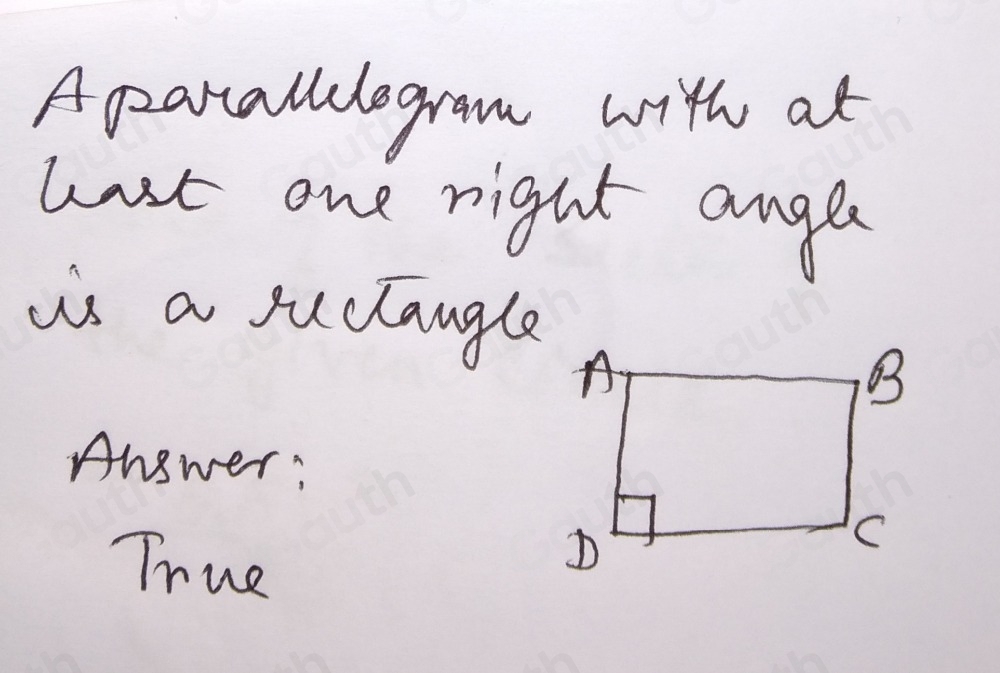 A parallelogram with at
least one right angle
is a rectangle
A B
Answer:
D C
True